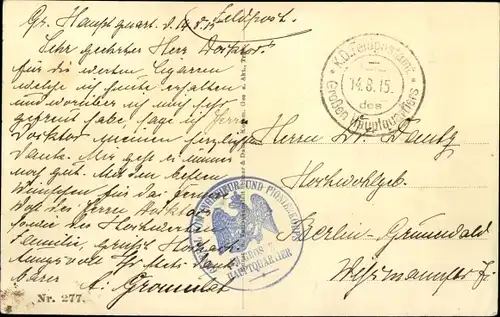 Gr. Hauptquart. d. 14.8.15
Feldpost.
Sehr geehrter Herr Doktor!
Für die werten Zigarren
welche ich heute erhalten
und worüber ich mich sehr
gefreut habe sage ich Herrn
Doktor meinen herzlichsten
Dank. Mir geht es immer
noch gut. Mit den besten
Wünschen für das
Wohl des Herrn Doktor
sowie der Hochwerten
Familie, grüßt Hochacht-
ungsvoll Ihr
barer
Nr. 277.
K.D. Feldpostamt
14.8.15.
des
Großen Hauptquartiers
INGENIEUR UND PIONIERKORPS
GROSSES
HAUPTQUARTIER
Herrn Dr. Dautz
Hochwohlgeb.
Berlin-Grunewald